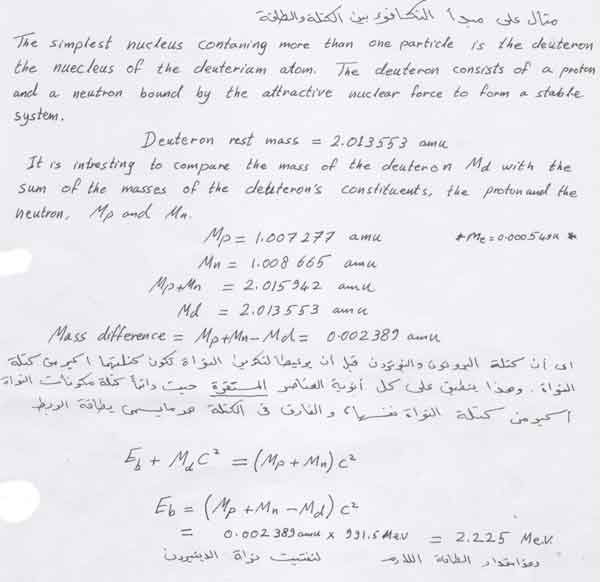 مثال على مبدأ التكافؤ بين الكتلة والطاقة
The simplest nucleus contaning more than one particle is the deuteron
the nuecleus of the deuterium atom. The deuteron consists of a proton
and a neutron bound by the attractive nuclear force to form a stable
system.
Deuteron rest mass = 2.013553 amu
It is intresting to compare the mass of the deuteron Md with the
sum of the masses of the deuteron's constituents, the proton and the
neutron, Mp and Mn.
Mp = 1.007277 amu * Me = 0.000549u *
Mn = 1.008665 amu
Mp+Mn = 2.015942 amu
Md = 2.013553 amu
Mass difference = Mp+Mn-Md = 0.002389 amu
اى أن كتلة البروتون والنيوترون قبل أن يرتبطا لتكوين النواة تكون كتلتهما أكبر من كتلة
النواة. وهذا ينطبق على كل أنوية العناصر المستقرة حيث دائماً كتلة مكونات النواة
أكبر من كتلة النواة نفسها، والفارق فى الكتلة هو مايسمى بطاقة الربط
Eb + MdC² = (Mp+Mn)C²
Eb = (Mp+Mn-Md)C²
= 0.002389amu x 931.5MeV = 2.225 MeV.
وهذا مقدار الطاقة اللازمة لتفتيت نواة الديتيرون